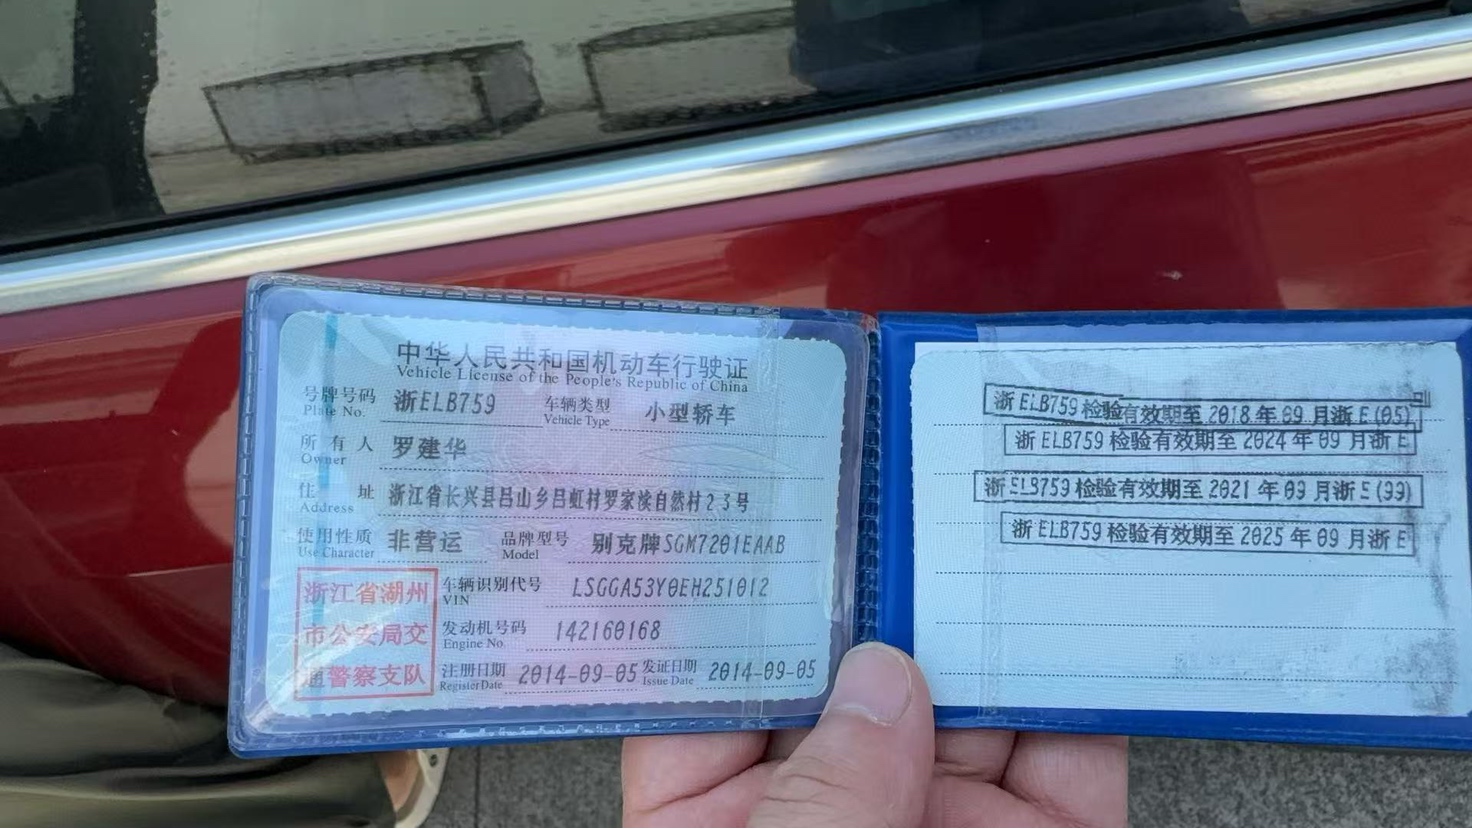 中华人民共和国机动车行驶证
Vehicle License of the People's Republic of China
号牌号码 浙ELB759 车辆类型 小型轿车
Plate No. Vehicle Type
所有人 罗建华
Owner
住址 浙江省长兴县吕山乡吕虹村罗家渎自然村23号
Address
使用性质 非营运 品牌型号 别克牌SGM7201EAAB
Use Character Model
浙江省湖州
市公安局交
通警察支队
车辆识别代号 LSGGA53Y0EH251012
VIN
发动机号码 142160168
Engine No.
注册日期 2014-09-05 发证日期 2014-09-05
Register Date Issue Date
浙ELB759检验有效期至2018年09月浙E(05)
浙ELB759检验有效期至2024年09月浙E
浙ELB759检验有效期至2021年09月浙E(99)
浙ELB759检验有效期至2025年09月浙E